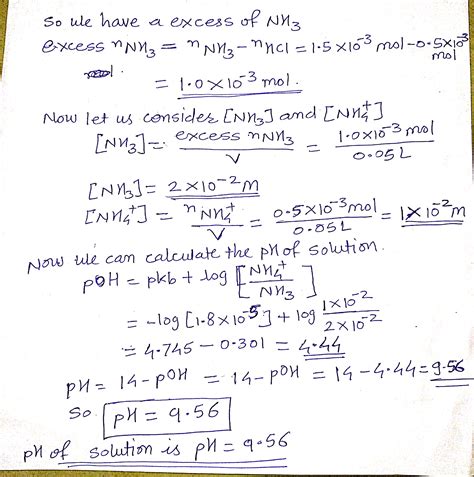 So we have a excess of NH3
excess nNH3 = nNH3 - nHCl = 1.5 × 10^-3 mol - 0.5 × 10^-3 mol
= 1.0 × 10^-3 mol.
Now let us consider [NH3] and [NH4+]
[NH3] = excess nNH3 / V = 1.0 × 10^-3 mol / 0.05 L
[NH3] = 2 × 10^-2 M
[NH4+] = nNH4+ / V = 0.5 × 10^-3 mol / 0.05 L = 1 × 10^-2 M
Now we can calculate the pH of solution.
pOH = pkb + log [NH4+ / NH3]
= -log [1.8 × 10^-5] + log 1 × 10^-2 / 2 × 10^-2
= 4.745 - 0.301 = 4.44
pH = 14 - pOH = 14 - pOH = 14 - 4.44 = 9.56
So pH = 9.56
pH of solution is pH = 9.56